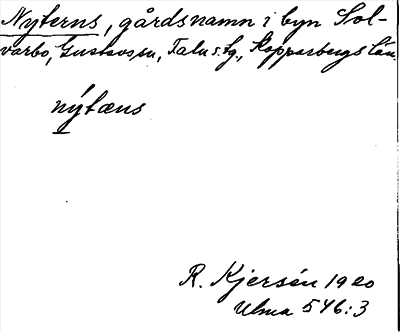 Nyterns, gårdsnamn i byn Sol-
varbo, Gustavs sn, Falu s. tg., Kopparbergs län.
nýtæns
R. Kjersén 1920
Ulma 546:3